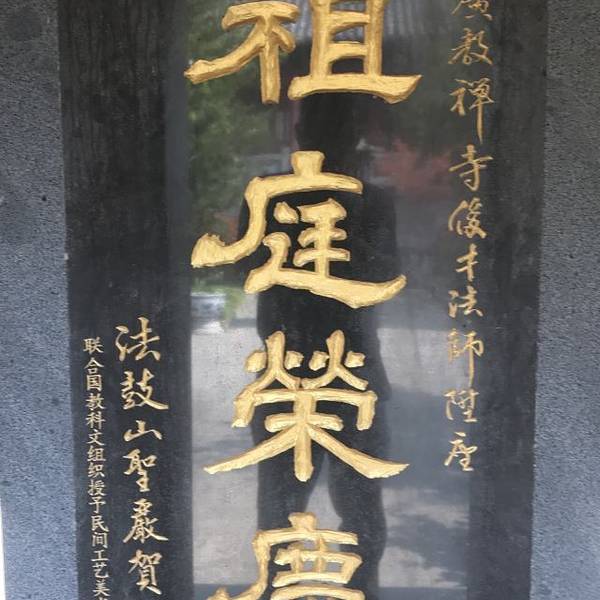 廣教禪寺俊才法師陞座
祖庭榮慶
法鼓山聖嚴賀
联合国教科文组织授予民间工艺美